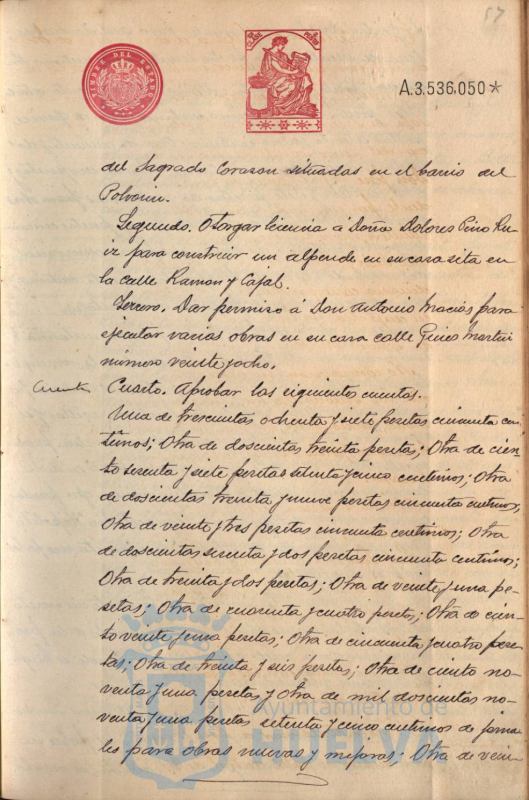 57
TIMBRE DEL ESTADO
A.3.536.050*
del Sagrado Corazon situadas en el barrio del
Polvorin.
Segundo. Otorgar licencia á Doña Dolores Pino Ru-
iz para construir un alpende en su casa sita en
la calle Ramon y Cajal.
Tercero. Dar permiso á Don Antonio Macias para
ejecutar varias obras en su casa calle Gines Martin
número veinte y ocho.
Cuentas Cuarto. Aprobar las siguientes cuentas.
Una de trescientas ochenta y siete pesetas cincuenta cen-
timos; Otra de doscientas treinta pesetas; Otra de cien-
to sesenta y siete pesetas setenta y cinco centimos; Otra
de doscientas treinta y nueve pesetas cincuenta centimos;
Otra de veinte y tres pesetas cincuenta centimos; Otra
de doscientas sesenta y dos pesetas cincuenta centimos;
Otra de treinta y dos pesetas; Otra de veinte y una pe-
setas; Otra de cuarenta y cuatro pesetas; Otra de cien-
to veinte y una pesetas; Otra de cincuenta y cuatro pese-
tas; Otra de treinta y seis pesetas; Otra de ciento no-
venta y una pesetas y Otra de mil doscientas no-
venta y una pesetas setenta y cinco centimos de jorna-
les para obras nuevas y mejoras; Otra de vein-
Ayuntamiento de
HUELVA